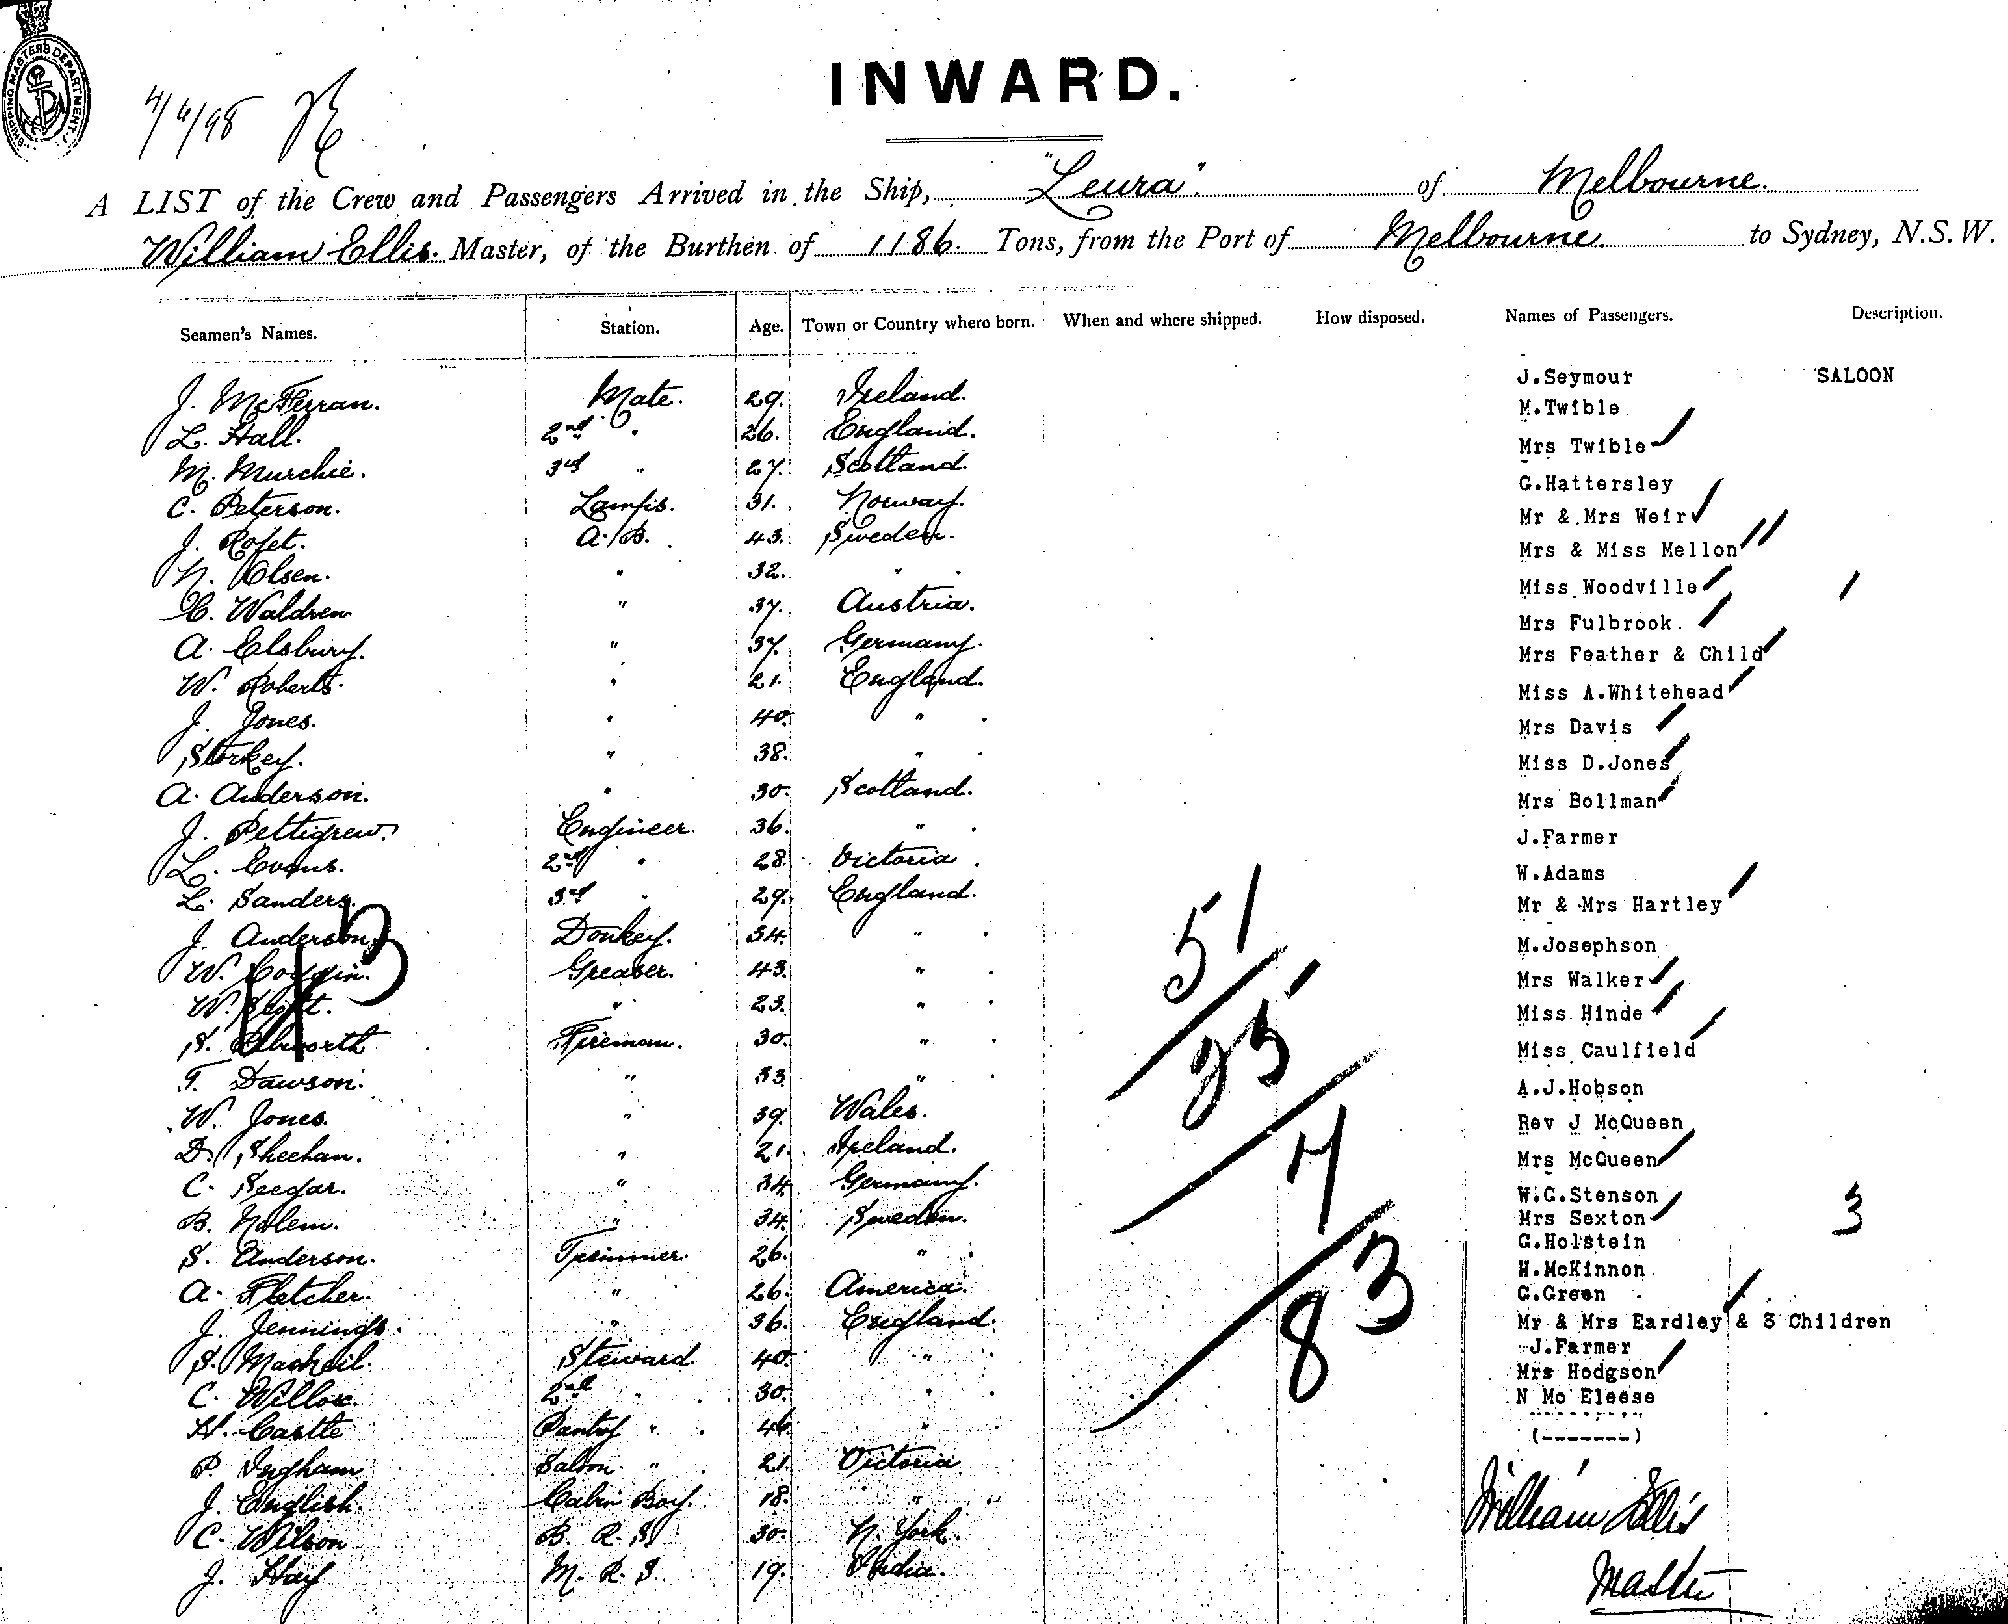 SHIPPING MASTERS DEPARTMENT
4/6/98
INWARD.
A LIST of the Crew and Passengers Arrived in the Ship, "Leura". of Melbourne.
William Ellis. Master, of the Burthen of 1186. Tons, from the Port of Melbourne. to Sydney, N.S.W.
Seamen's Names. Station. Age. Town or Country where born. When and where shipped. How disposed. Names of Passengers. Description.
J. McFerran. Mate. 29. Ireland.
L. Hall. 2nd " 26. England.
M. Murchie. 3rd " 27. Scotland.
C. Peterson. Lamps. 31. Norway.
J. Rofet. A.B. 43. Sweden.
N. Olsen. " 32. " "
C. Waldren " 37. Austria.
A. Elsbury. " 37. Germany.
W. Roberts. " 21. England.
J. Jones. " 40. "
Storkey. " 38. "
A. Anderson. " 30. Scotland.
J. Pettigrew. Engineer. 36. "
L. Evans. 2nd " 28. Victoria.
L. Sanders. 3rd " 29. England.
J. Anderson. Donkey. 34. "
W. Coggin. Greaser. 43. "
W. " 23. "
S. Fireman. 30. "
T. Dawson. " 33. "
W. Jones. " 39. Wales.
D. Sheehan. " 21. Ireland.
C. Seegar. " 34. Germany.
B. Nolem. " 34. Sweden.
S. Anderson. Trimmer. 26. "
A. Fletcher. " 26. America.
J. Jennings. " 36. England.
S. Macneil. Steward. 40. "
C. Willox. 2nd " 30. "
H. Castle Pantry " 46. "
P. Ingham Saloon " 21. Victoria
J. English. Cabin Boy. 18. "
C. Wilson B. R. S. 30. N. York.
J. Hay M. R. S. 19. India.
J.Seymour SALOON
M.Twible
Mrs Twible
G.Hattersley
Mr & Mrs Weir
Mrs & Miss Mellon
Miss Woodville
Mrs Fulbrook.
Mrs Feather & Child
Miss A.Whitehead
Mrs Davis
Miss D.Jones
Mrs Bollman
J.Farmer
W.Adams
Mr & Mrs Hartley
M.Josephson
Mrs Walker
Miss Hinde
Miss Caulfield
A.J.Hobson
Rev J McQueen
Mrs McQueen
W.G.Stenson
Mrs Sexton
G.Holstein
H.McKinnon
G.Green
Mr & Mrs Eardley & 3 Children
J.Farmer
Mrs Hodgson
N Mc Eleese
(-------)
1
3
51
35
4
83
William Ellis
Master